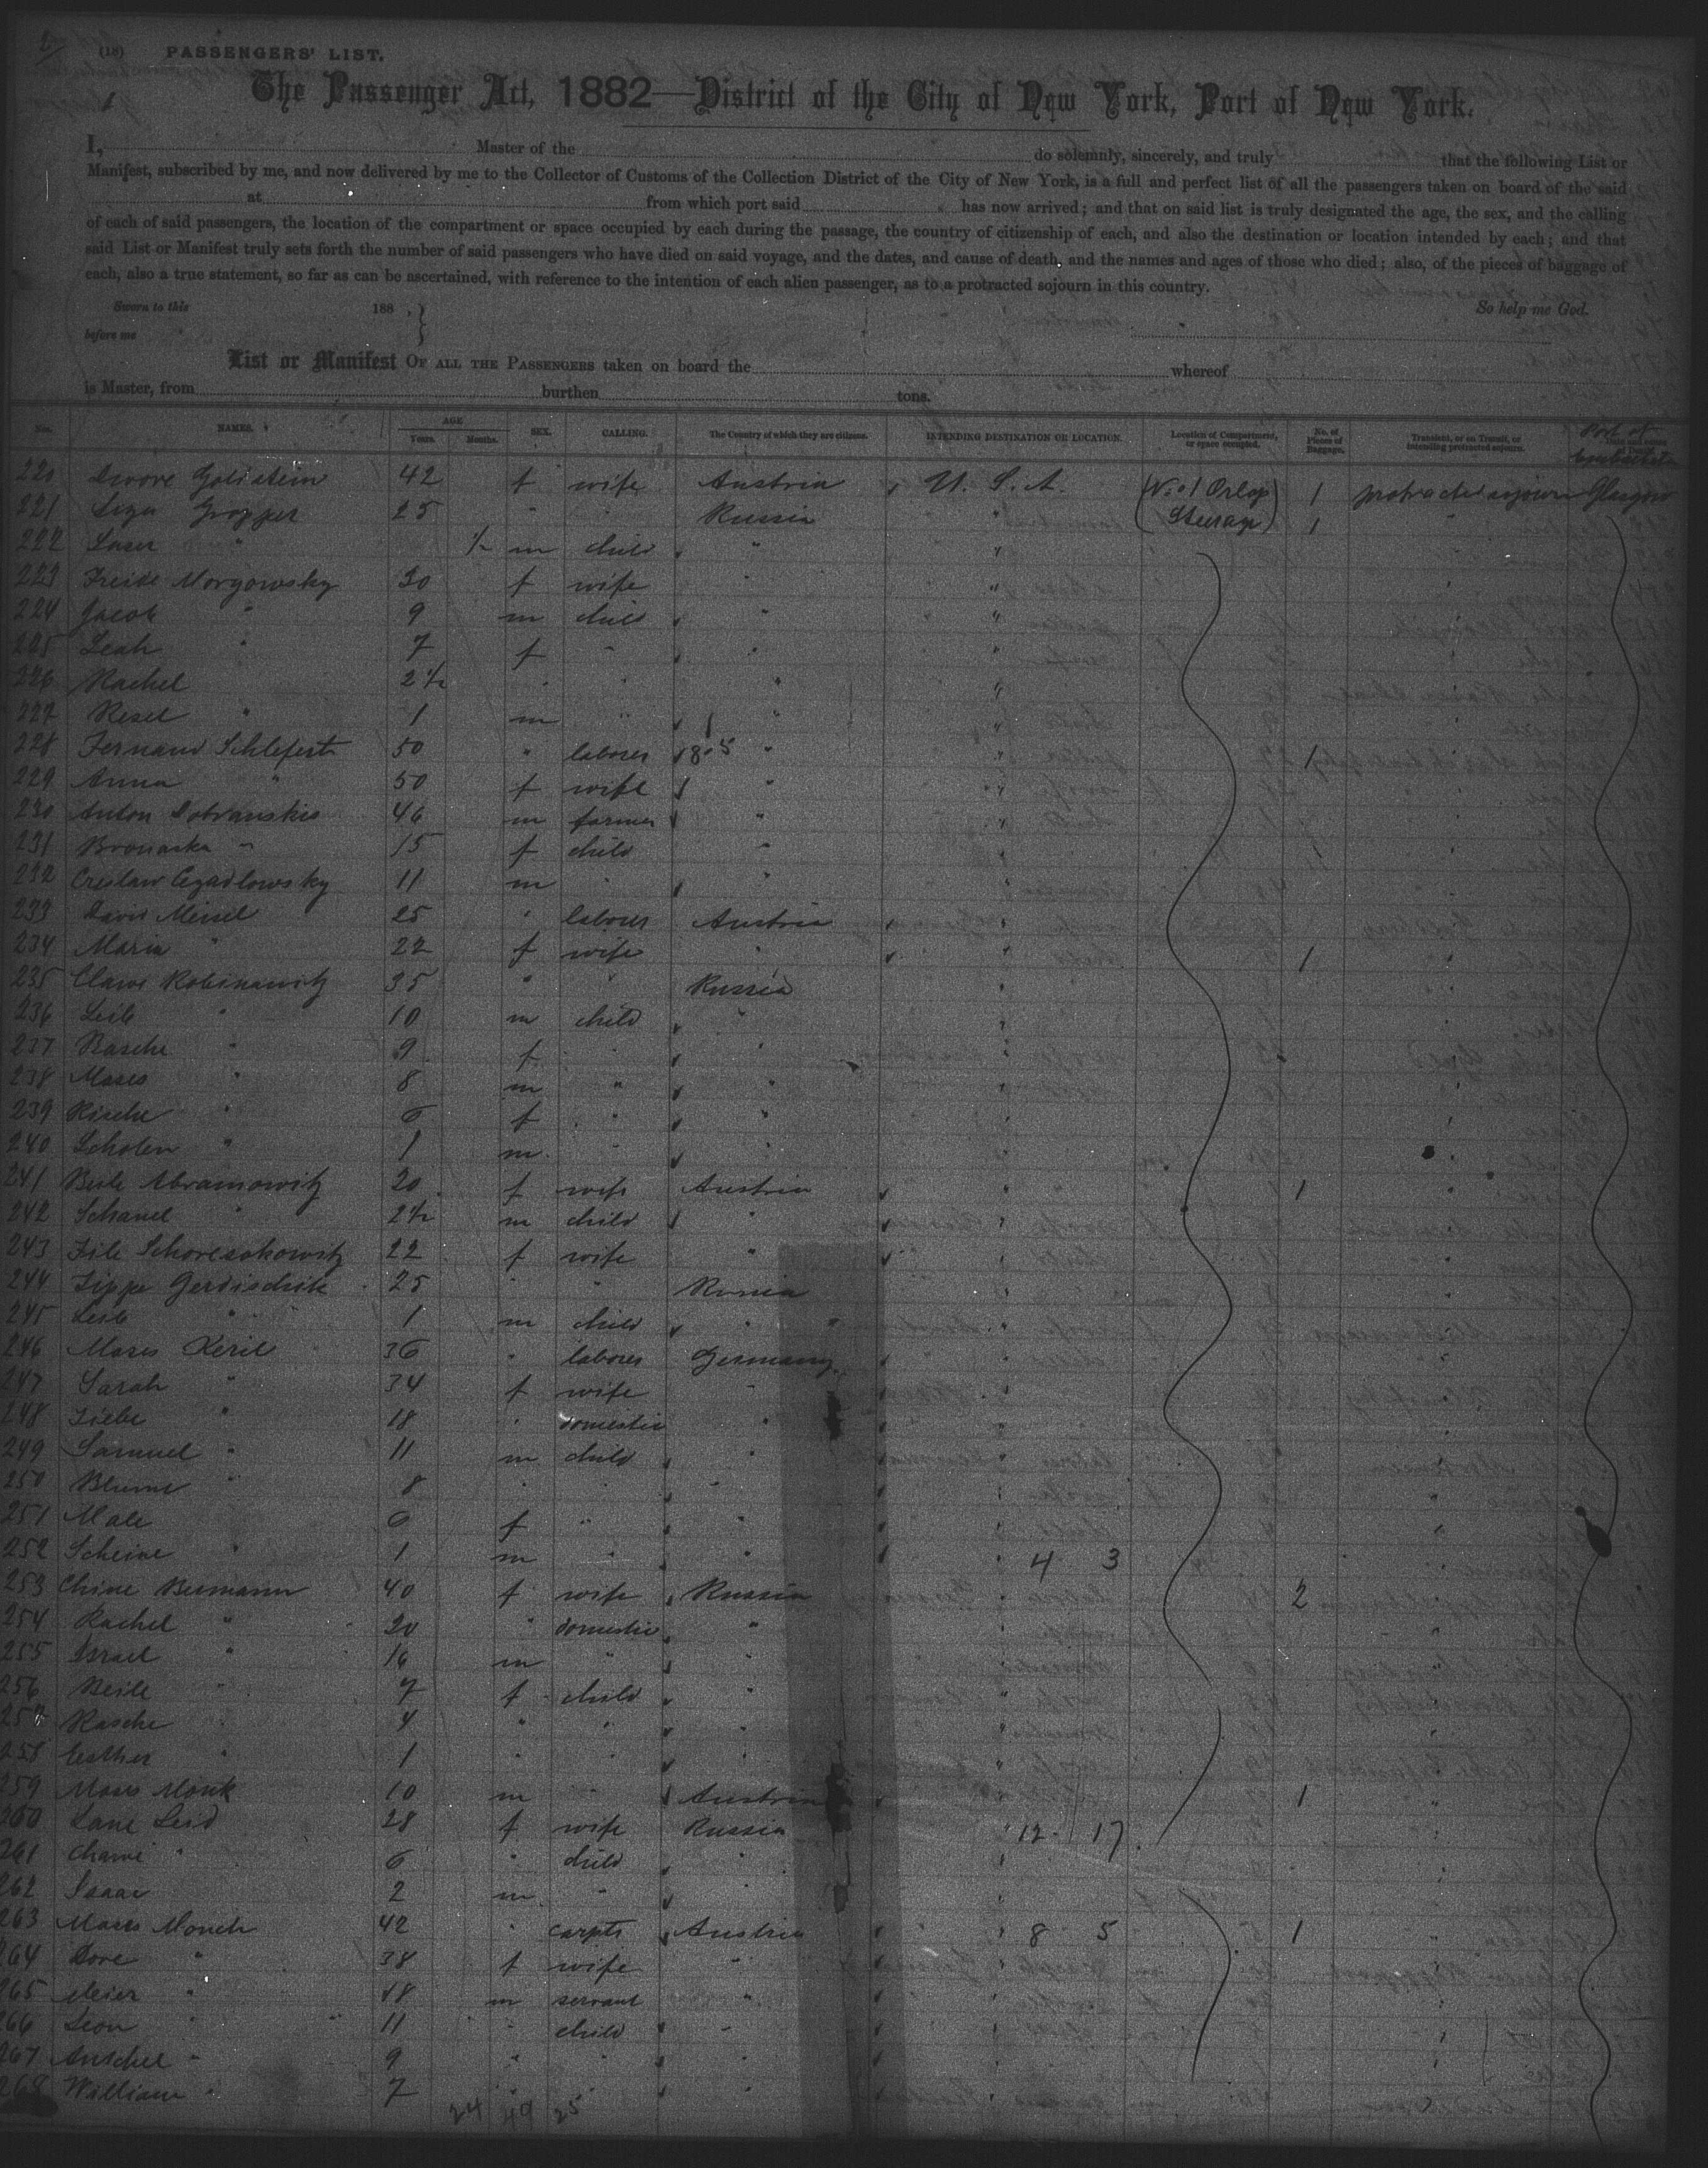 (18) PASSENGERS' LIST.
The Passenger Act, 1882—District of the City of New York, Port of New York.
I, Master of the do solemnly, sincerely, and truly that the following List or
Manifest, subscribed by me, and now delivered by me to the Collector of Customs of the Collection District of the City of New York, is a full and perfect list of all the passengers taken on board of the said
at from which port said has now arrived; and that on said list is truly designated the age, the sex, and the calling
of each of said passengers, the location of the compartment or space occupied by each during the passage, the country of citizenship of each, and also the destination or location intended by each; and that
said List or Manifest truly sets forth the number of said passengers who have died on said voyage, and the dates, and cause of death, and the names and ages of those who died; also, of the pieces of baggage of
each, also a true statement, so far as can be ascertained, with reference to the intention of each alien passenger, as to a protracted sojourn in this country.
Sworn to this 188 So help me God.
before me
List or Manifest OF ALL THE PASSENGERS taken on board the whereof
is Master, from burthen tons.
Nos. NAMES. AGE Years. Months. SEX. CALLING. The Country of which they are citizens. INTENDING DESTINATION OR LOCATION. Location of Compartment, or space occupied. No. of Pieces of Baggage. Transient, or en Transit, or intending protracted sojourn. Port of
220 Dwore Goldstein 42 f wife Austria U. S. A. (No 1 Orlop 1 protracted sojourn Glasgow
221 Liza Gropper 25 " " Russia " Steerage) 1 "
222 Laser " m child " "
223 Freide Morgowsky 30 f wife " "
224 Jacob " 9 m child " "
225 Leah " 7 f " " "
226 Rachel 2½ " " " "
227 Resel " 1 m " " "
228 Fernand Schlefert 50 " laborer " " 1
229 Anna " 50 f wife " "
230 Anton Dobranskis 46 m farmer " "
231 Bronaska " 15 f child " "
232 Creslaw Czadlowsky 11 m " " "
233 David Meisel 25 " laborer Austria "
234 Maria " 22 f wife " " 1
235 Clawe Robinawitz 35 " " Russia "
236 Leib " 10 m child " "
237 Basche " 9 f " " "
238 Moses " 8 m " " "
239 Rische " 6 f " " "
240 Scholem " 1 m " " "
241 Beile Abramowitz 20 f wife Austria " 1
242 Schanel " 2½ m child " "
243 22 f wife " "
244 Zippe Gerdischik 25 " " Russia "
245 Leib " 1 m child " "
246 Moses Keril 36 " laborer Germany "
247 Sarah " 34 f wife " "
248 Liebe " 18 " domestic " "
249 Samuel " 11 m child " "
250 Blume " 8 " " " "
251 Male 6 f " " "
252 Scheine " 1 m " " " 4 3
253 Chine Bermann 40 f wife Russia " 2
254 Rachel " 20 " domestic " "
255 Israel " 16 m " " "
256 Beile " 7 f child " "
257 Rasche " 4 " " " "
258 Esther " 1 " " " "
259 Moses Monk 10 m " Austria " 1
260 Lane Leid 28 f wife Russia " 12 17
261 Chawe " 6 " child " "
262 Isaac 2 m " " "
263 Moses Monch 42 " carptr Austria " 8 5 1
264 Dore " 38 f wife " "
265 Meier " 18 m servant " "
266 Leon " 11 " child " "
267 Anschel " 9 " " " "
268 William " 7 " " " "
24 49 25